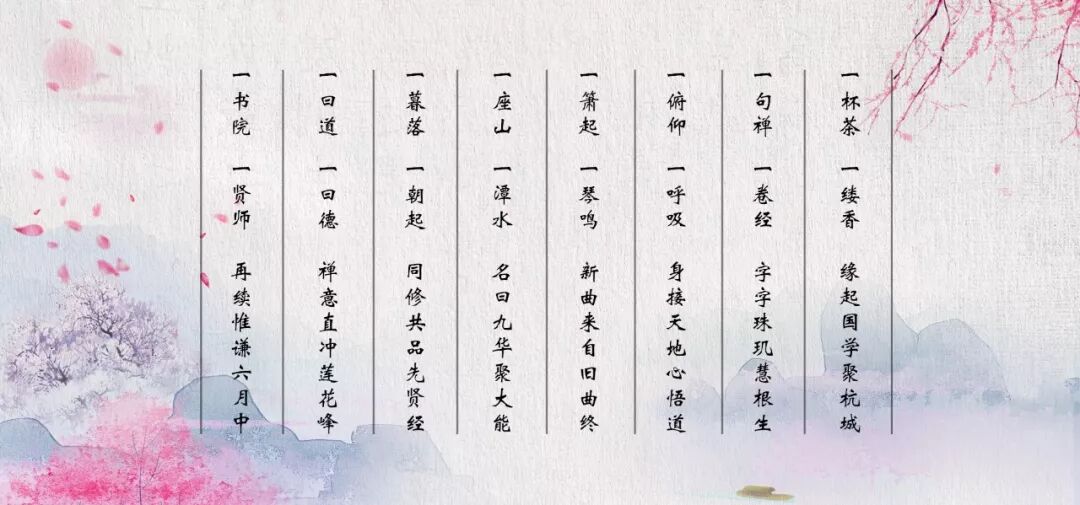 一杯茶 一缕香 缘起国学聚杭城
一句禅 一卷经 字字珠玑慧根生
一俯仰 一呼吸 身接天地心悟道
一箫起 一琴鸣 新曲来自旧曲终
一座山 一潭水 名曰九华聚大能
一暮落 一朝起 同修共品先贤经
一曰道 一曰德 禅意直冲莲花峰
一书院 一贤师 再续惟谦六月中